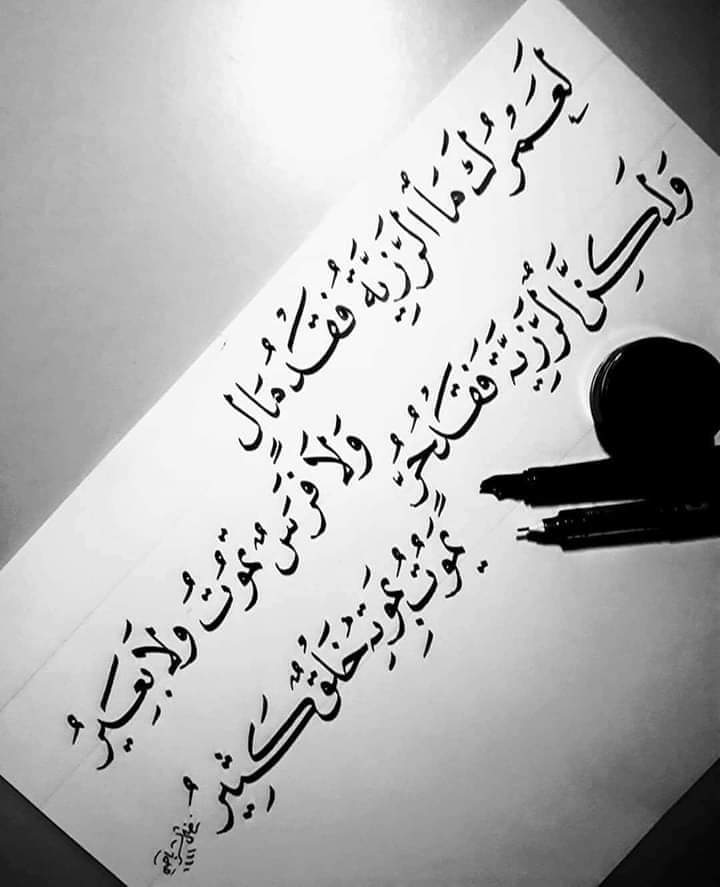 لَعَمْرُكَ مَا الرَّزِيَّةُ فَقْدُ مَالٍ
وَلَا فَرَسٌ يَمُوتُ وَلَا بَعِيرُ
وَلَكِنَّ الرَّزِيَّةَ فَقْدُ حُرٍّ
يَمُوتُ بِمَوْتِهِ خَلْقٌ كَثِيرُ